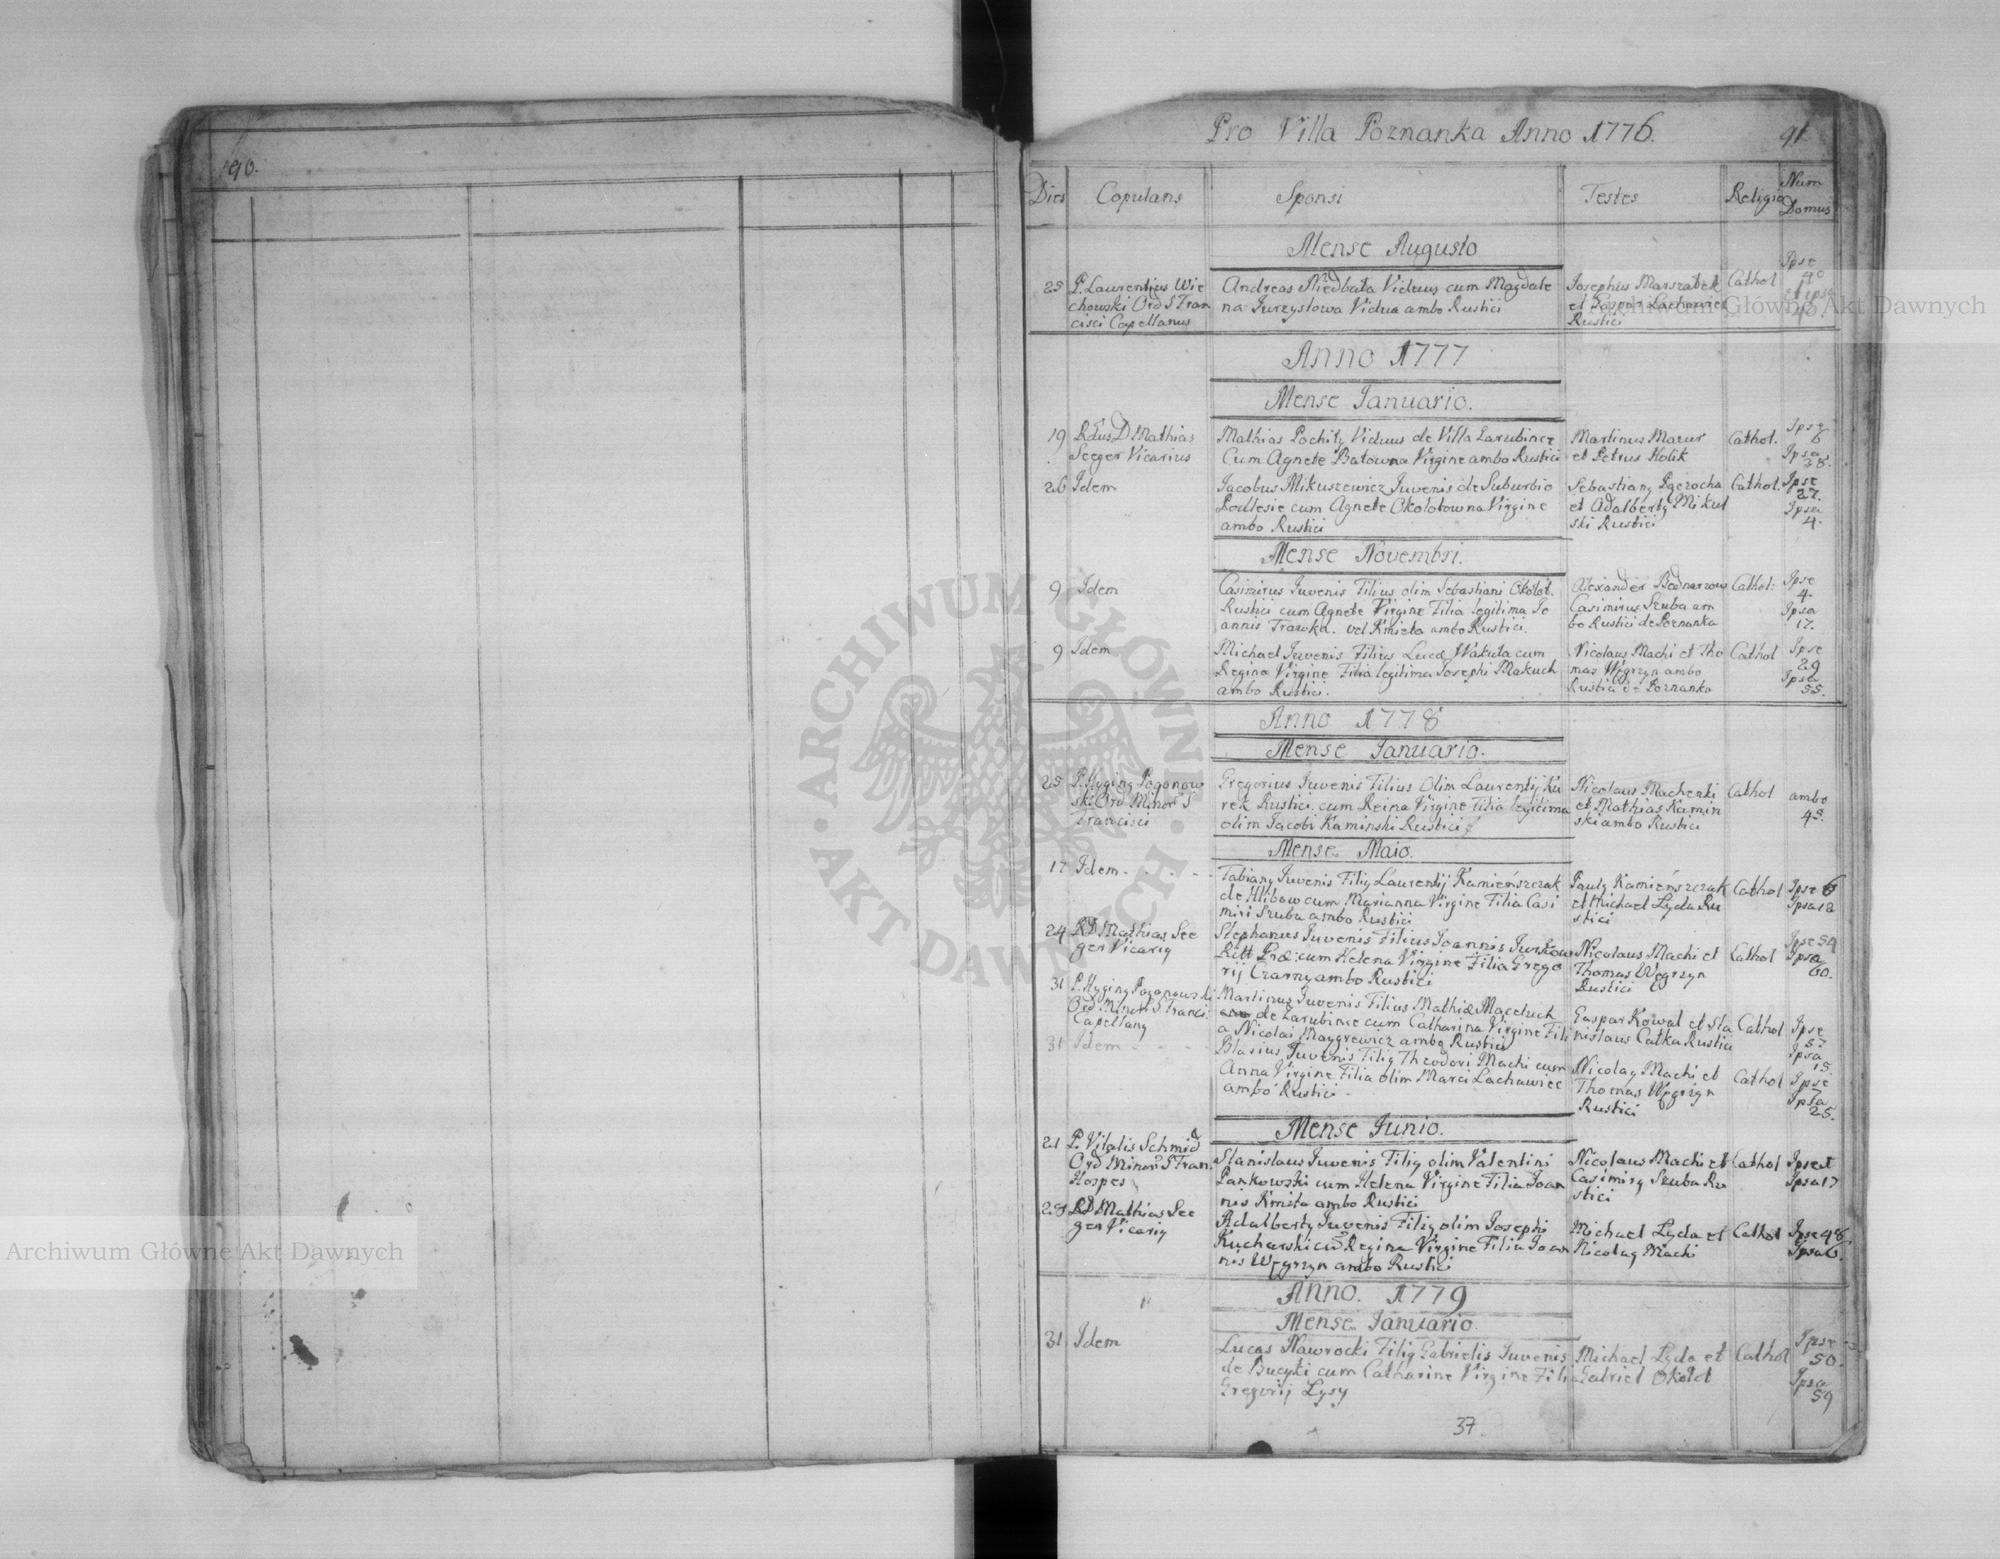 90.
Pro Villa Poznanka Anno 1776.
91
Dies Copulans Sponsi Testes Religio Num Domus
Mense Augusto
25 P. Laurentius Wie
chowski Ord S Fran
cisci Capellanus
Andreas Niedbała Viduus cum Magdale
na Jurzysłowa Vidua ambo Rustici
Josephus Marszałek
et Gaspar Lachowicz
Rustici
Cathol
Ipse
40
et ipsa
40
Anno 1777
Mense Ianuario.
19 Rdus D Mathias
Seeger Vicarius
Mathias Pochiły Viduus de Villa Zarubince
Cum Agnete Batowna Virgine ambo Rustici
Martinus Mazur
et Petrus Holik
Cathol.
Ipse
6
Ipsa
38.
26 Idem
Jacobus Mikuszewicz Juvenis de Suburbio
Podlesie cum Agnete Okolotowna Virgine
ambo Rustici
Sebastiany Pgerocha
et Adalberty Mikul
ski Rustici
Cathol.
Ipse
27.
Ipsa
4.
Mense Novembri.
9 Idem
Casimirus Juvenis Filius olim Sebastiani Okołot.
Rustici cum Agnete Virgine Filia legitima Jo
annis Trawka. vel Kmieta ambo Rustici.
Alexander Bednarzow
Casimirus Szuba am
bo Rustici de Poznanka
Cathol:
Ipse
4.
Ipsa
17.
9 Idem
Michael Juvenis Filius Lucæ Wakuta cum
Regina Virgine Filia legitima Josephi Makuch
ambo Rustici.
Nicolaus Machi et Tho
mas Węgrzyn ambo
Rustici de Poznanka
Cathol
Ipse
29
Ipsa
55.
Anno 1778
Mense Ianuario.
25 P. Hyginy Pogonow
ski Ord Minor S
Francisci
Gregorius Juvenis Filius Olim Laurentij Ku
rek Rustici cum Reina Virgine Filia legitima
olim Jacobi Kaminski Rustici
Nicolaus Machenki
et Mathias Kamin
ski ambo Rustici
Cathol
ambo
45.
Mense Maio.
17 Idem
Fabiany Juvenis Filiy Laurentij Kamieńszczak
de Hlibow cum Marianna Virgine Filia Casi
miri Szuba ambo Rustici
Pauly Kamieńszczak
et Michael Lyda Ru
stici
Cathol
Ipse 6
Ipsa 12
24 RD Mathias See
ger Vicariy
Stephanus Juvenis Filius Joannis Jurkow
Ritt Præ: cum Helena Virgine Filia Grego
rij Czarny ambo Rustici
Nicolaus Machi et
Thomas Węgrzyn
Rustici
Cathol
Ipse 54
Ipsa
60.
31 P. Hyginy Pogonowski
Ord Minor S Franci.
Capellany
Martinus Juvenis Filius Mathiæ Maceluch
de Zarubince cum Catharina Virgine Fili
a Nicolai Maygrewicz ambo Rustici
Gaspar Kowal et Sta
nislaus Całka Rustici
Cathol
Ipse
57
Ipsa
15.
31 Idem
Blasius Juvenis Filiy Theodori Machi cum
Anna Virgine Filia olim Marci Lachawiec
ambo Rustici
Nicolay Machi et
Thomas Węgrzyn
Rustici
Cathol
Ipse
7
Ipsa
25.
Mense Junio.
21 P. Vitalis Schmid
Ord Minor S Fran.
Hospes
Stanislaus Juvenis Filiy olim Valentini
Pankowski cum Helena Virgine Filia Joan
nis Kmita ambo Rustici
Nicolaus Machi et
Casimiry Szuba Ru
stici
Cathol
Ipse et
Ipsa 17
28 RD Mathias See
ger Vicariy
Adalberty Juvenis Filiy olim Josephi
Kucharski cum Regina Virgine Filia Joan
nis Węgrzyn ambo Rustici
Michael Lyda et
Nicolay Machi
Cathol
Ipse 48
Ipsa 6.
Anno. 1779
Mense Ianuario.
31 Idem
Lucas Nawrocki Filiy Gabrielis Juvenis
de Bucyki cum Catharine Virgine Filia
Gregorij Lysy
Michael Lyda et
Gabriel Okołot
Cathol
Ipse
50.
Ipsa
59
37.
Archiwum Główne Akt Dawnych
Archiwum Główne Akt Dawnych
ARCHIWUM GŁÓWNE AKT DAWNYCH